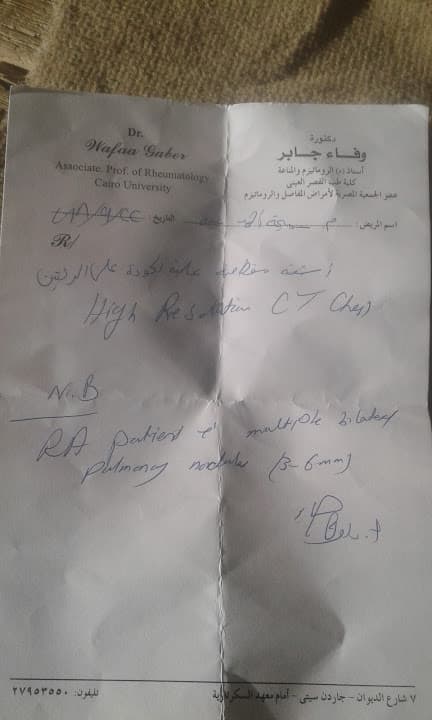 Dr.
Wafaa Gaber
Associate. Prof. of Rheumatology
Cairo University
دكتورة
وفاء جابر
أستاذ (د) الروماتيزم والمناعة
كلية طب القصر العينى
عضو الجمعية المصرية لأمراض المفاصل والروماتيزم
اسم المريض: التاريخ:
R/
أشعة مقطعية عالية الجودة على الرئتين
High Resolution CT Chest
N.B
RA patient c multiple bilateral
pulmonary nodules (3-6mm)
٧ شارع الديوان - جاردن سيتى - أمام معهد السكرتارية
تليفون: ٢٧٩٥٣٥٥٠